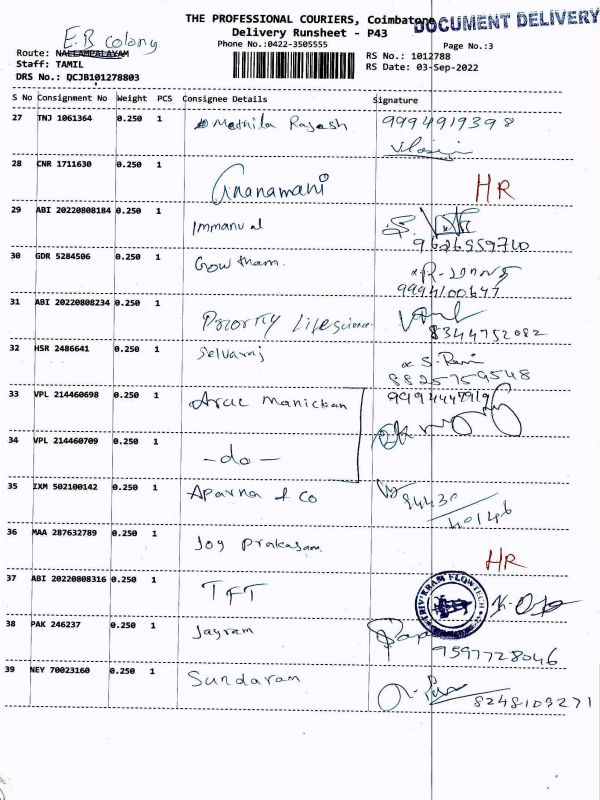 THE PROFESSIONAL COURIERS, Coimbatore
DOCUMENT DELIVERY
Delivery Runsheet - P43
E.B colony
Phone No.:0422-3505555
Page No.:3
Route: NALLAMPALAYAM
RS No.: 1012788
Staff: TAMIL
RS Date: 03-Sep-2022
DRS No.: QCJB101278803
S No Consignment No Weight PCS Consignee Details Signature
27 TNJ 1061364 0.250 1 Methila Rajesh 9994919398
28 CNR 1711630 0.250 1 Gnanamani HR
29 ABI 20220808184 0.250 1 Immanual
9626559710
30 GDR 5284506 0.250 1 Gowtham.
9994100647
31 ABI 20220808234 0.250 1 Priority Lifescience
8344752082
32 HSR 2486641 0.250 1 Selvaraj S. Rani
8825759548
33 VPL 214460698 0.250 1 Arul Manickan 9994447919
34 VPL 214460709 0.250 1 -do-
35 IXM 502100142 0.250 1 Aparna & Co 94430
40146
36 MAA 287632789 0.250 1 Joy prakasam HR
37 ABI 20220808316 0.250 1 TFT TRIVIKRAM FLOWTECH
38 PAK 246237 0.250 1 Jayram
9597728046
39 NEY 70023160 0.250 1 Sundaram
8248109271